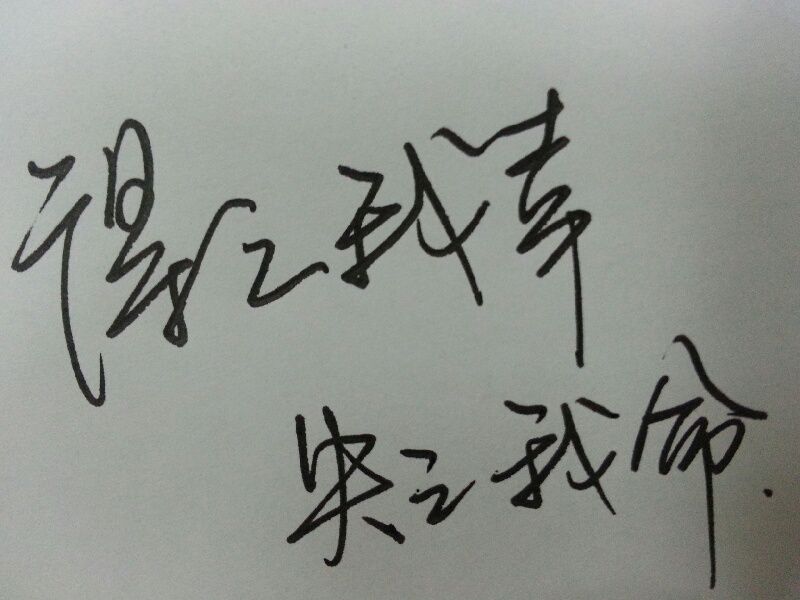 得之我幸
失之我命.